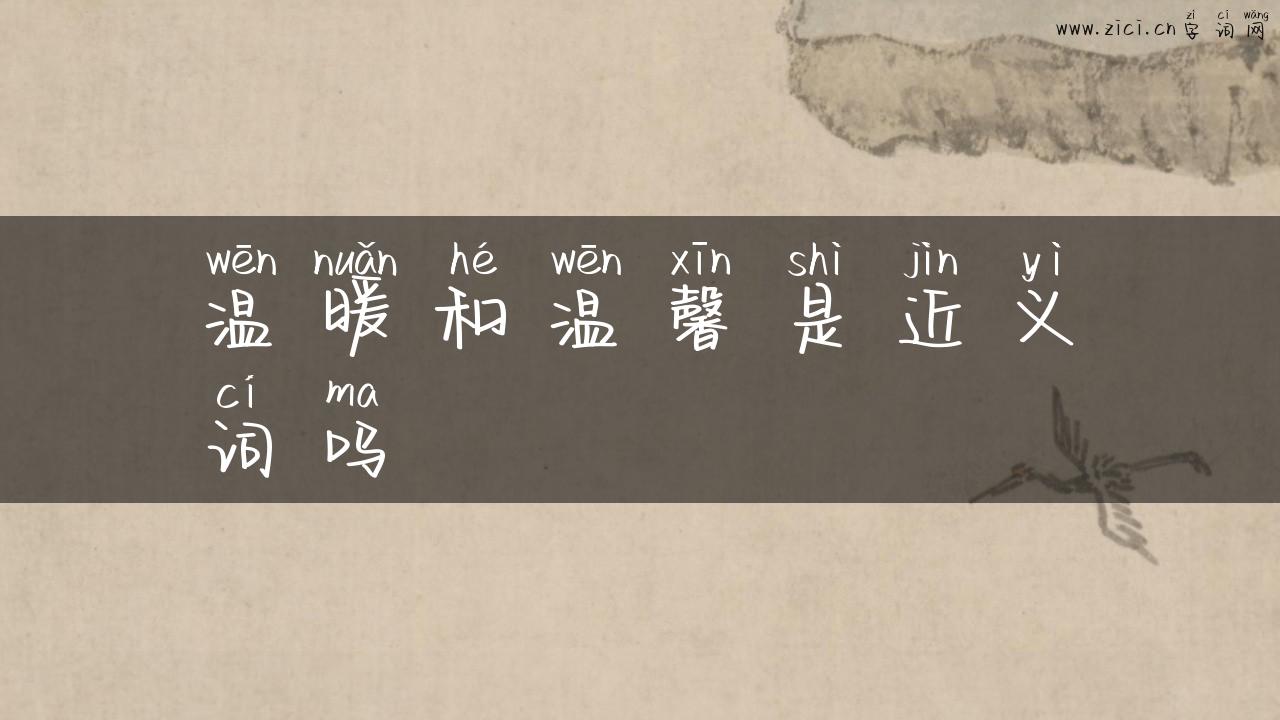 zì cí wǎng
www.zici.cn字词网
wēn nuǎn hé wēn xīn shì jìn yì
温暖和温馨是近义
cí ma
词吗